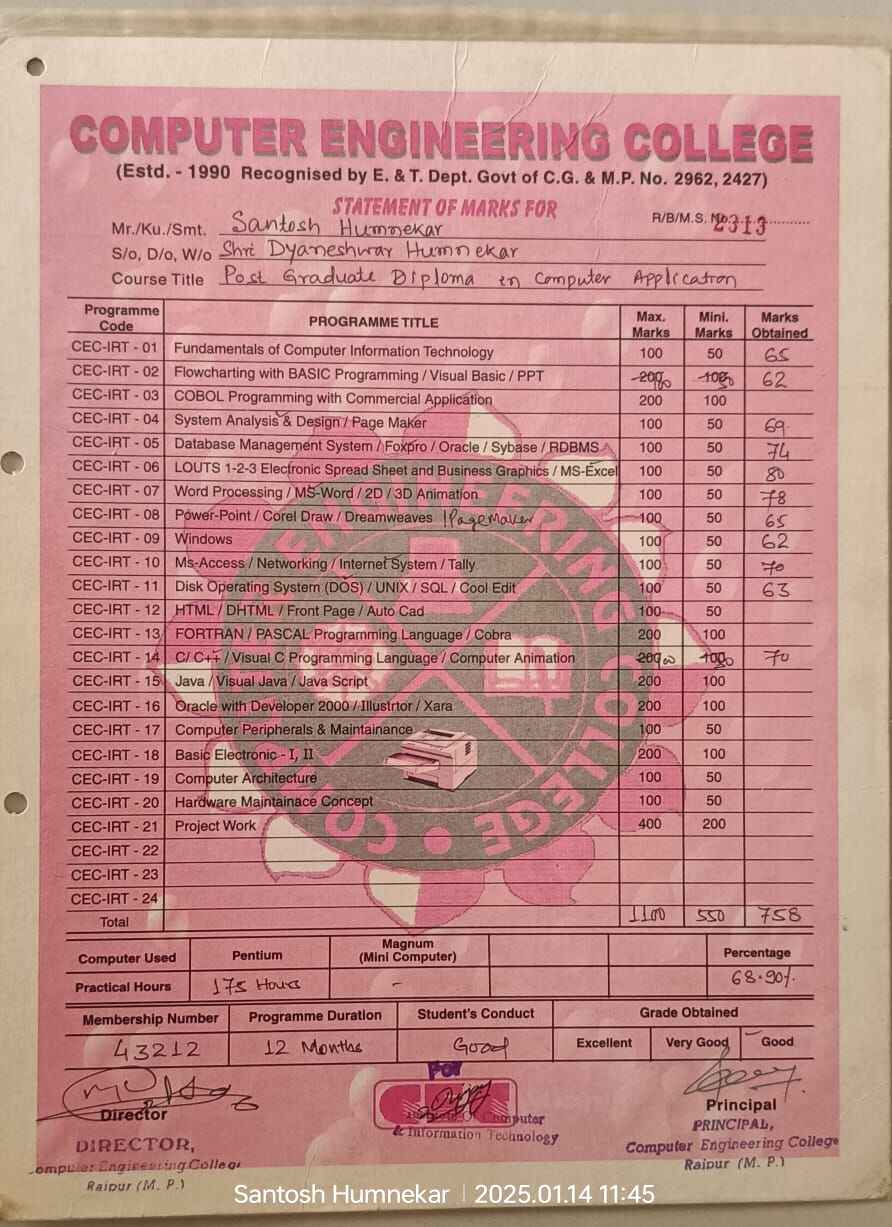 COMPUTER ENGINEERING COLLEGE
(Estd. - 1990 Recognised by E. & T. Dept. Govt of C.G. & M.P. No. 2962, 2427)
STATEMENT OF MARKS FOR
R/B/M.S. No. 2313
Mr./Ku./Smt. Santosh Humnekar
S/o, D/o, W/o Shri Dyaneshwar Humnekar
Course Title Post Graduate Diploma in Computer Application
Programme Code PROGRAMME TITLE Max. Marks Mini. Marks Marks Obtained
CEC-IRT - 01 Fundamentals of Computer Information Technology 100 50 65
CEC-IRT - 02 Flowcharting with BASIC Programming / Visual Basic / PPT 200 100 100 50 62
CEC-IRT - 03 COBOL Programming with Commercial Application 200 100
CEC-IRT - 04 System Analysis & Design / Page Maker 100 50 69
CEC-IRT - 05 Database Management System / Foxpro / Oracle / Sybase / RDBMS 100 50 74
CEC-IRT - 06 LOUTS 1-2-3 Electronic Spread Sheet and Business Graphics / MS-Excel 100 50 80
CEC-IRT - 07 Word Processing / MS-Word / 2D / 3D Animation 100 50 78
CEC-IRT - 08 Power-Point / Corel Draw / Dreamweaves / Pagemaker 100 50 65
CEC-IRT - 09 Windows 100 50 62
CEC-IRT - 10 Ms-Access / Networking / Internet System / Tally 100 50 70
CEC-IRT - 11 Disk Operating System (DOS) / UNIX / SQL / Cool Edit 100 50 63
CEC-IRT - 12 HTML / DHTML / Front Page / Auto Cad 100 50
CEC-IRT - 13 FORTRAN / PASCAL Programming Language / Cobra 200 100
CEC-IRT - 14 C/ C++ / Visual C Programming Language / Computer Animation 200 100 100 50 70
CEC-IRT - 15 Java / Visual Java / Java Script 200 100
CEC-IRT - 16 Oracle with Developer 2000 / Illustrtor / Xara 200 100
CEC-IRT - 17 Computer Peripherals & Maintainance 100 50
CEC-IRT - 18 Basic Electronic - I, II 200 100
CEC-IRT - 19 Computer Architecture 100 50
CEC-IRT - 20 Hardware Maintainace Concept 100 50
CEC-IRT - 21 Project Work 400 200
CEC-IRT - 22
CEC-IRT - 23
CEC-IRT - 24
Total 1100 550 758
Computer Used Pentium Magnum (Mini Computer) Percentage
Practical Hours 175 Hours - 68.90%
Membership Number Programme Duration Student's Conduct Grade Obtained
43212 12 Months Good Excellent Very Good Good
For
Director Principal
DIRECTOR, Computer PRINCIPAL,
Computer Engineering College & Information Technology Computer Engineering College
Raipur (M. P.) Raipur (M. P.)
Santosh Humnekar | 2025.01.14 11:45